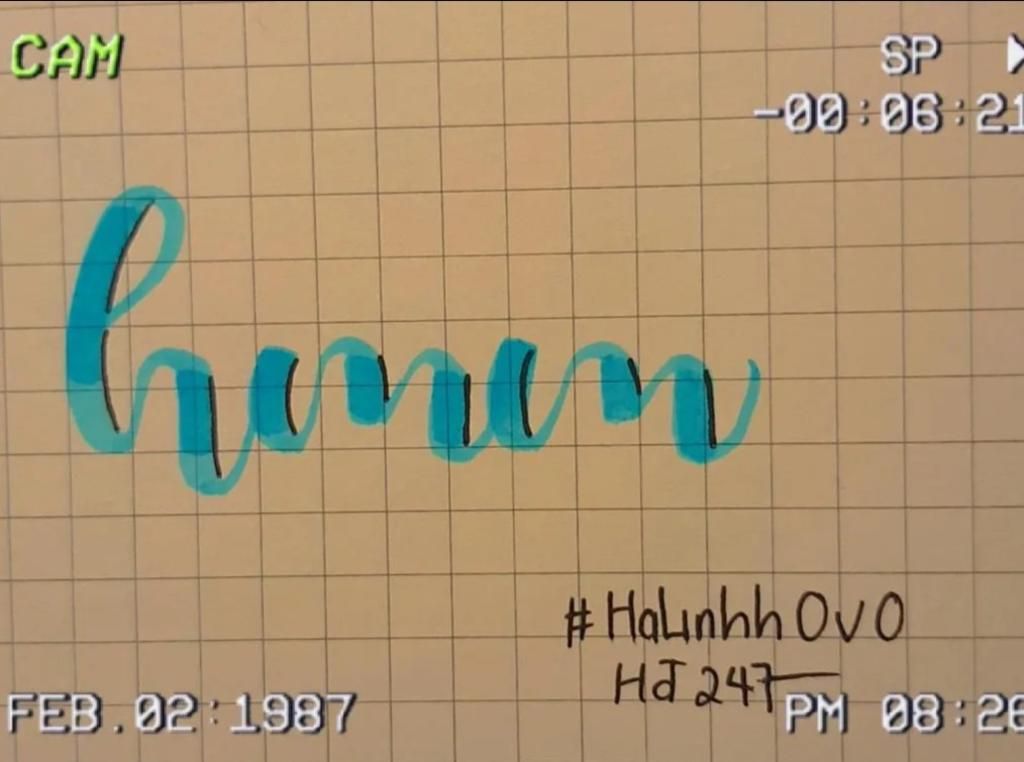 CAM SP
-00:06:21
hmm
#HaLinhhOvO
Hđ 247
FEB.02:1987 PM 08:26